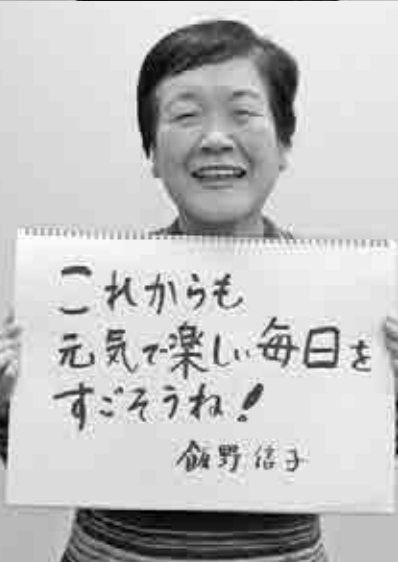 これからも
元気で楽しい毎日を
すごそうね!
飯野信子